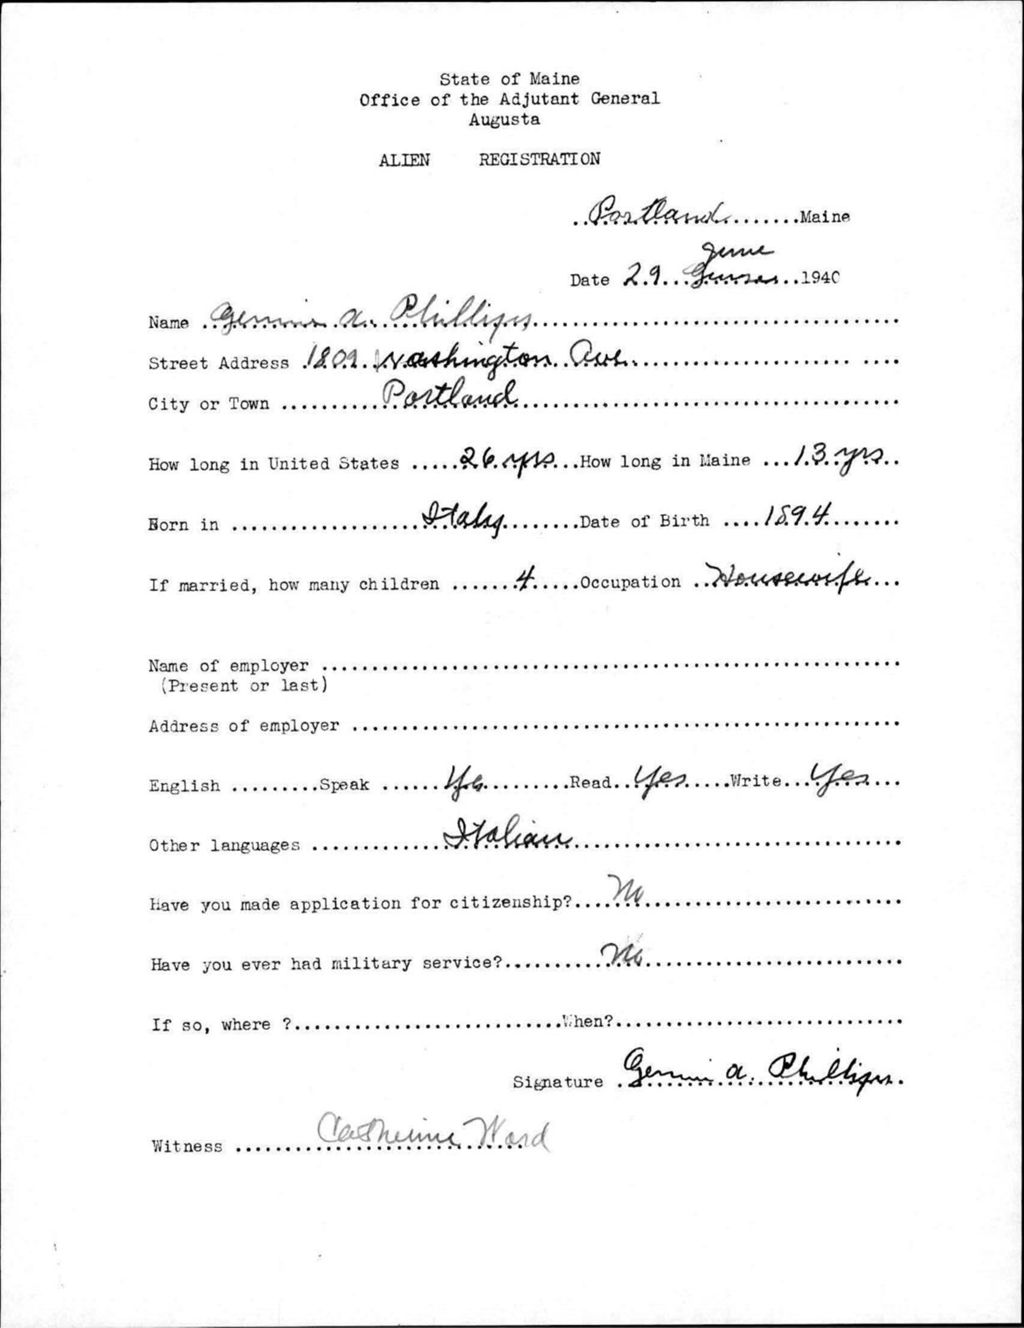 State of Maine
Office of the Adjutant General
Augusta
ALIEN REGISTRATION
Portland Maine
June
Date 29 1940
Name A. Phillips
Street Address 1809 Washington Ave.
City or Town Portland
How long in United States 26 yrs How long in Maine 13 yrs
Born in Italy Date of Birth 1894
If married, how many children 4 Occupation Housewife
Name of employer
(Present or last)
Address of employer
English Speak Yes Read Yes Write Yes
Other languages Italian
Have you made application for citizenship? No
Have you ever had military service? No
If so, where ? When?
Signature A. Phillips
Witness Catherine Ward